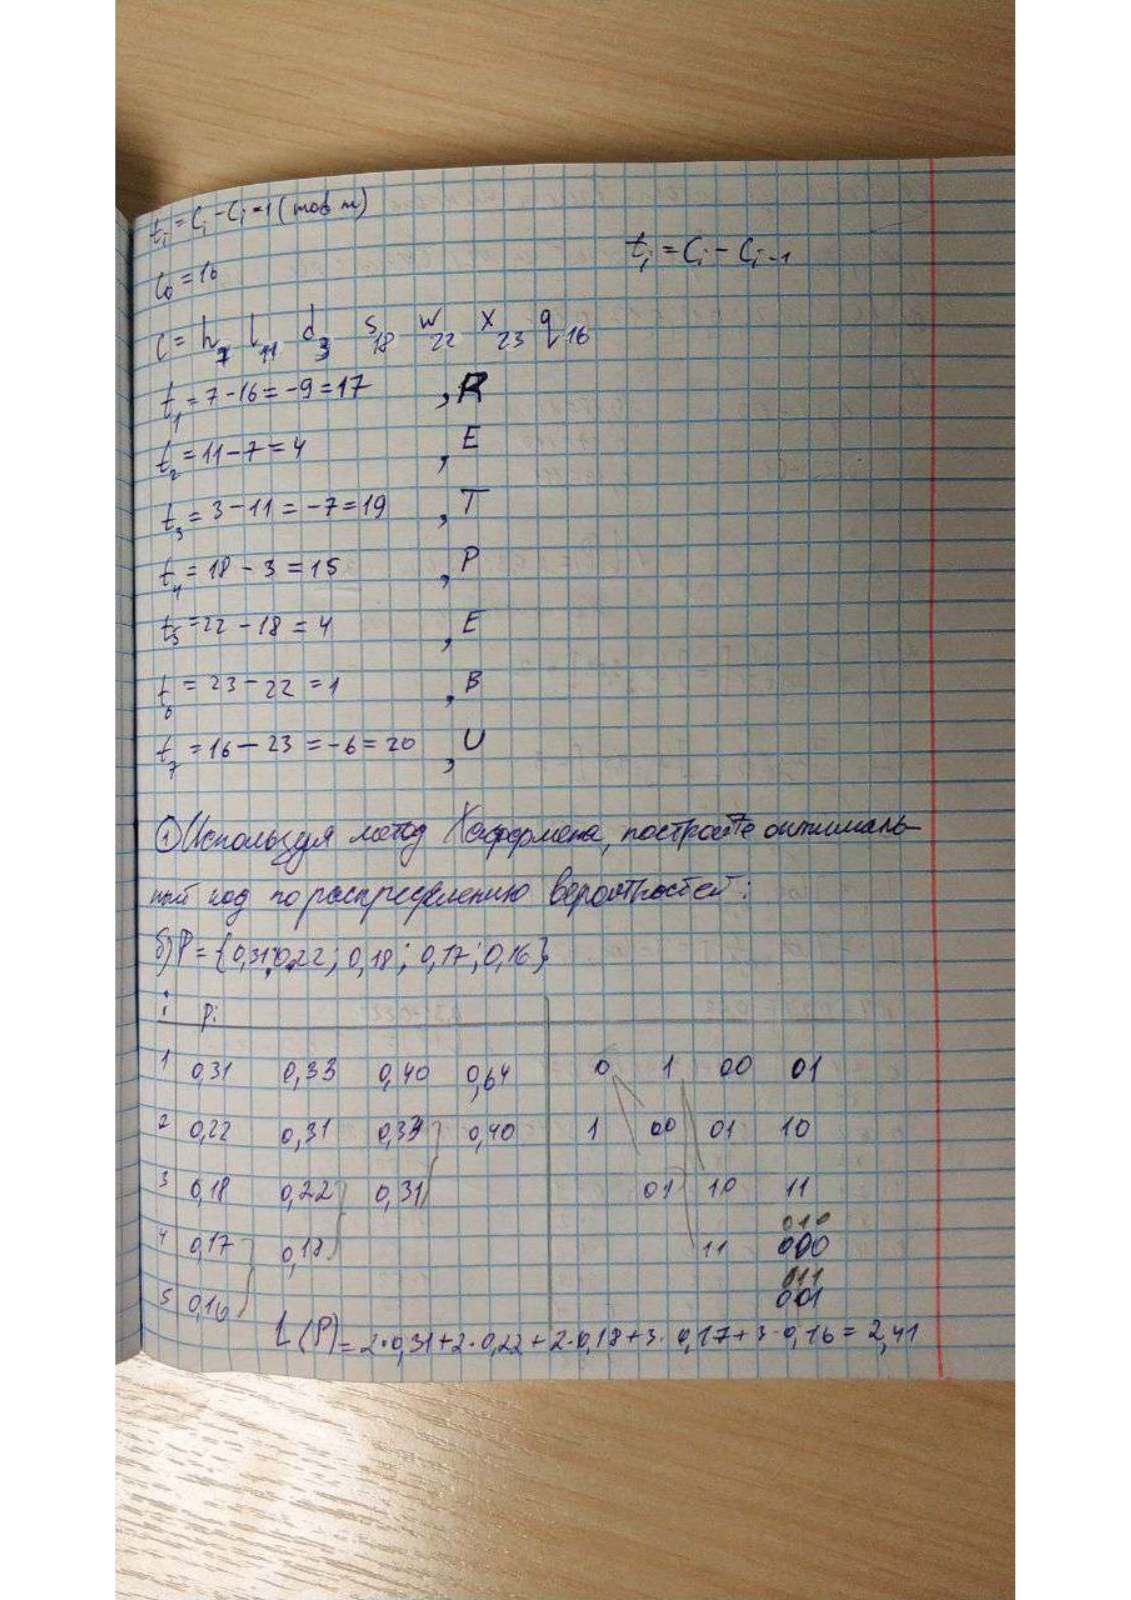 t_i = C_i - C_i-1 (mod m)
t_i = C_i - C_i-1
C_0 = 16
C = h_7 l_11 d_3 s_18 w_22 x_23 q_16
t_1 = 7 - 16 = -9 = 17 , R
t_2 = 11 - 7 = 4 , E
t_3 = 3 - 11 = -7 = 19 , T
t_4 = 18 - 3 = 15 , P
t_5 = 22 - 18 = 4 , E
t_6 = 23 - 22 = 1 , B
t_7 = 16 - 23 = -6 = 20 , U
① Используя метод Хаффмена, постройте оптималь-
ный код по распределению вероятностей:
б) P = {0,31; 0,22; 0,18; 0,17; 0,16}
i p_i
1 0,31 0,33 0,40 0,64 0 1 00 01
2 0,22 0,31 0,33 0,40 1 00 01 10
3 0,18 0,22 0,31 01 10 11
010
4 0,17 0,18 11 000
011
5 0,16 001
L(P) = 2·0,31 + 2·0,22 + 2·0,18 + 3·0,17 + 3·0,16 = 2,41